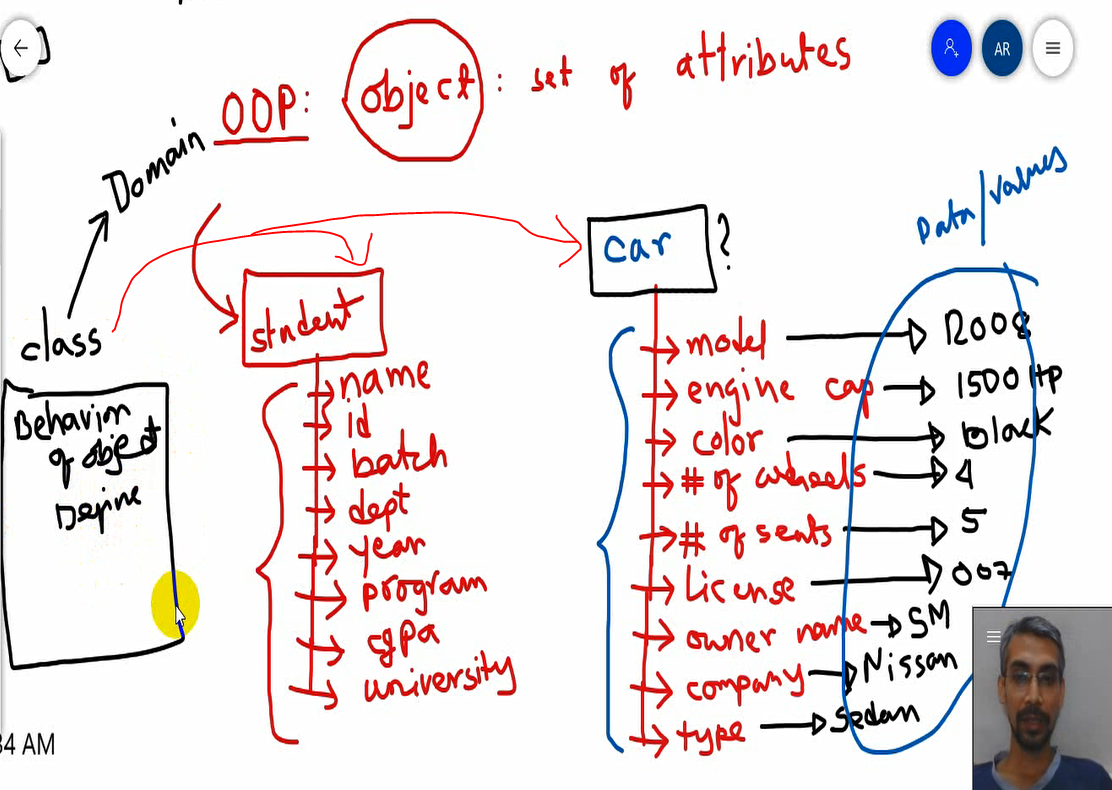 OOP: object : set of attributes
AR
Domain
class
Behavior
of object
Define
student
name
id
batch
dept
year
program
cgpa
university
car ?
Data/values
model R008
engine cap 1500 HP
color black
# of wheels 4
# of seats 5
License 007
owner name SM
company Nissan
type Sedan
34 AM